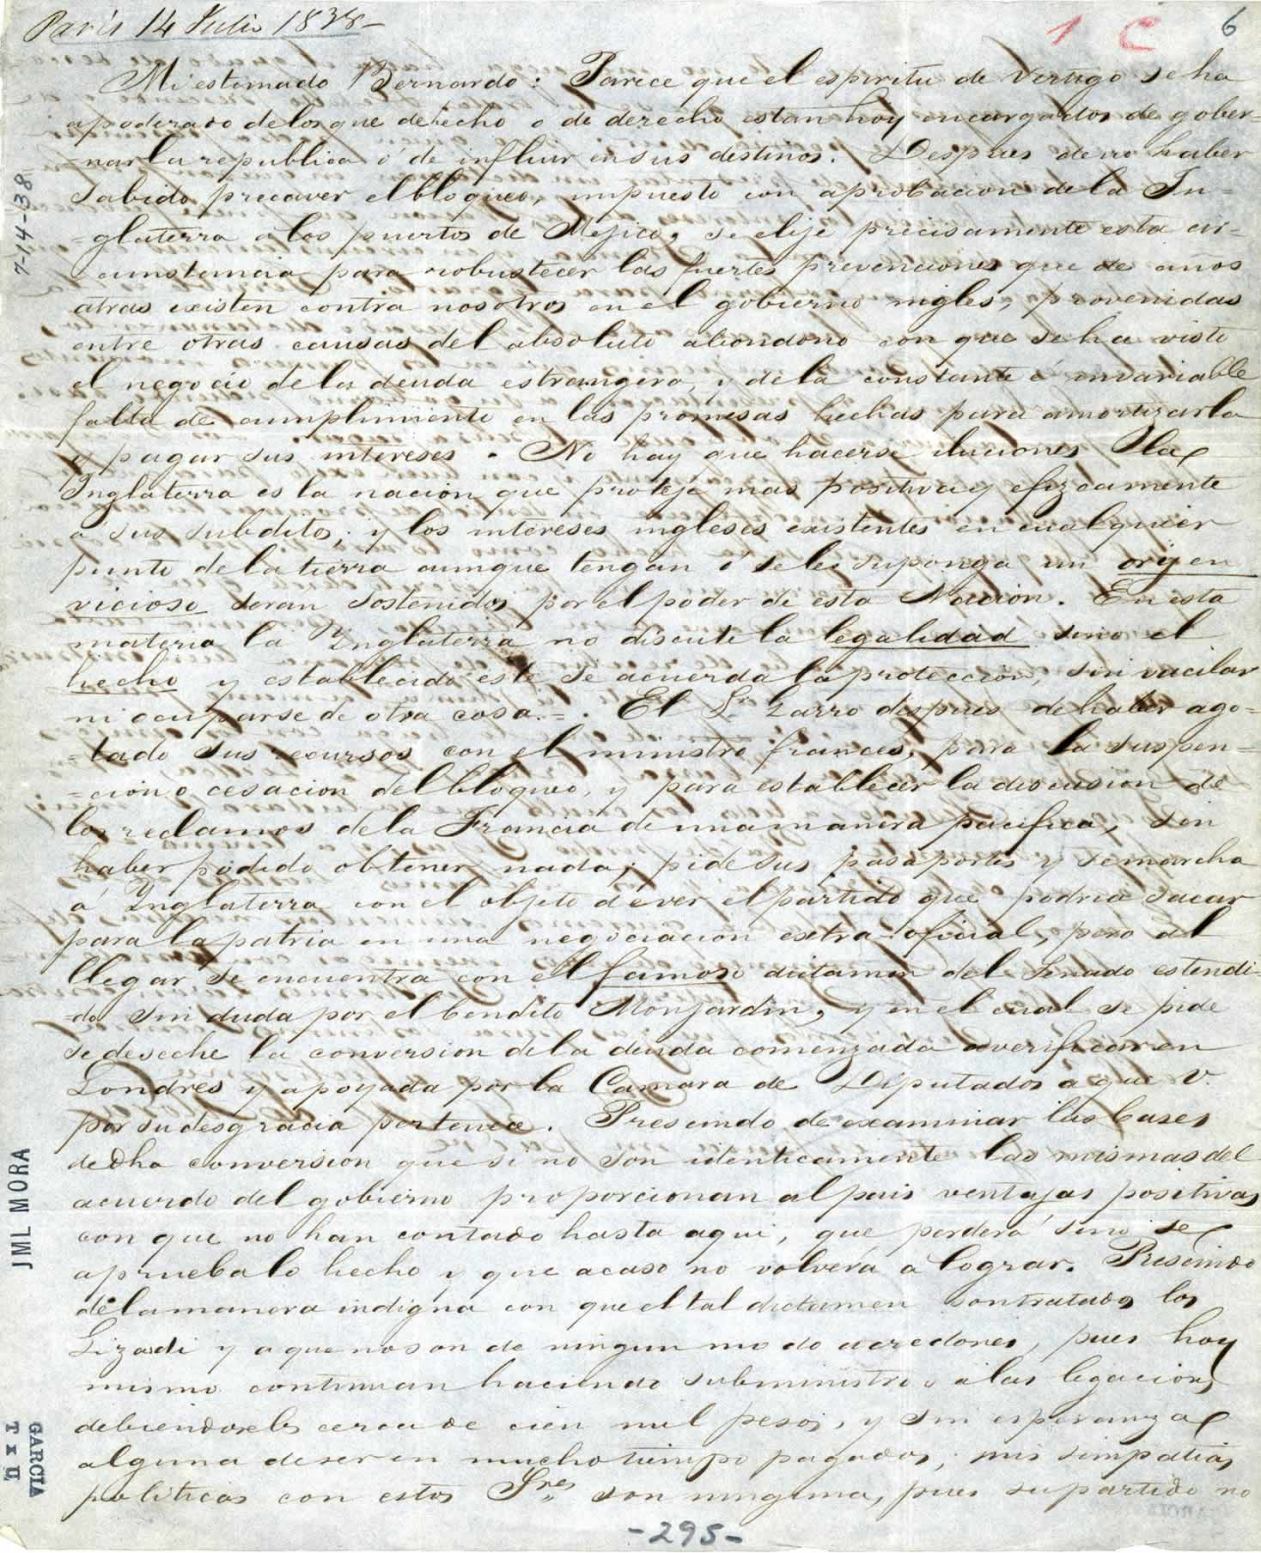 Paris 14 Julio 1838-
1 C 6
Mi estimado Bernardo: Parece que el espiritu de vertigo se ha
apoderado de los que de hecho o de derecho estan hoy encargados de gober-
-nar la republica ó de influir en sus destinos. Despues de no haber
sabido precaver el bloqueo, impuesto con aprobacion de la In-
-glaterra a los puertos de Mejico, se elije precisamente esta cir-
-cunstancia para robustecer las fuertes prevenciones que de años
atras existen contra nosotros en el gobierno ingles, provenidas
entre otras causas del absoluto abandono con que se ha visto
el negocio de la deuda estrangera, y de la constante é invariable
falta de cumplimiento en las promesas hechas para amortizarla
y pagar sus intereses. No hay que hacerse iluciones la
Inglaterra es la nación que proteje mas positiva y eficazmente
a sus subditos; y los intereses ingleses existentes en cualquier
punto de la tierra aunque tengan ó se les suponga un orijen
vicioso seran sostenidos por el poder de esta Nación. En esta
materia la Inglaterra no discute la legalidad sino el
hecho y establecido este se acuerda la protección, sin vacilar
ni ocuparse de otra cosa.=. El Sr. Garro despues de haber ago-
-tado sus recursos con el ministro frances, para la suspen-
-cion o cesacion del bloqueo, y para establecer la discusion de
los reclamos de la Francia de una manera pacifica, sin
haber podido obtener nada; pide sus pasaportes y se marcha
á Inglaterra con el objeto de ver el partido que podria sacar
para la patria en una negociacion extra-oficial, pero al
llegar se encuentra con el famoso dictamen del Senado estendi-
-do sin duda por el bendito Monjardin, y en el cual se pide
se deseche la conversion de la deuda comenzada a verificar en
Londres y apoyada por la Camara de Diputados a que V.
por su desgracia pertenece. Presindo de examinar las bases
de dha conversion que si no son identicamente las mismas del
acuerdo del gobierno proporcionan al pais ventajas positivas
con que no han contado hasta aqui, que perderá sino se
aprueba lo hecho y que acaso no volverá a lograr. Presindo
de la manera indigna con que el tal dictamen son tratados los
Lizardi y a que no son de ningun modo acredores, pues hoy
mismo continuan haciendo subministros a las legaciones
debiendoseles cerca de cien mil pesos, y sin esperanza
alguna de ser en mucho tiempo pagados; mis simpatias
politicas con estos Sres. son ninguna, pues su partido no
-295-
7-14-38
JML MORA
GARCIA
TxU